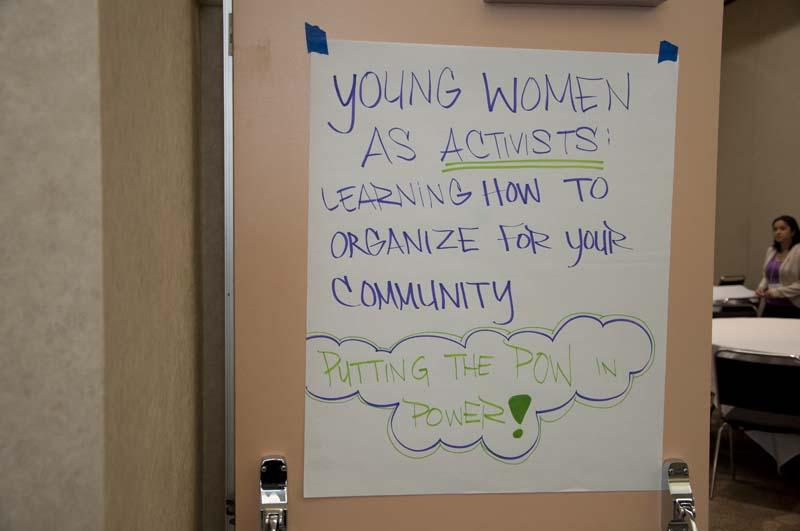 YOUNG WOMEN
AS ACTIVISTS:
LEARNING HOW TO
ORGANIZE FOR YOUR
COMMUNITY
PUTTING THE POW IN
POWER!